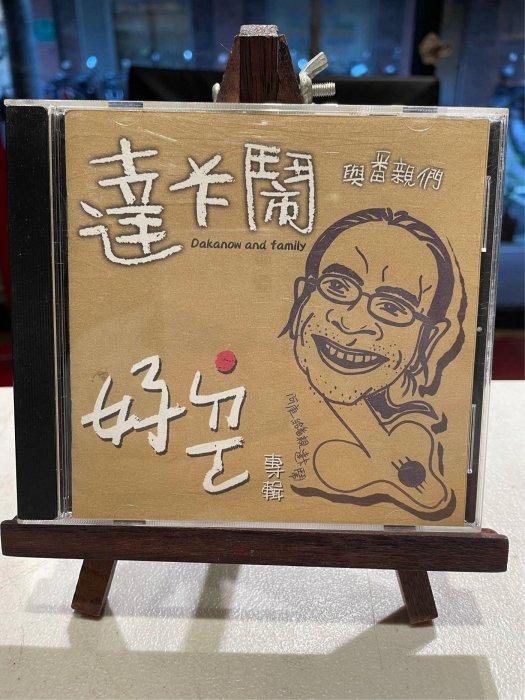 達卡鬧
與番親們
Dakanow and family
好
專輯